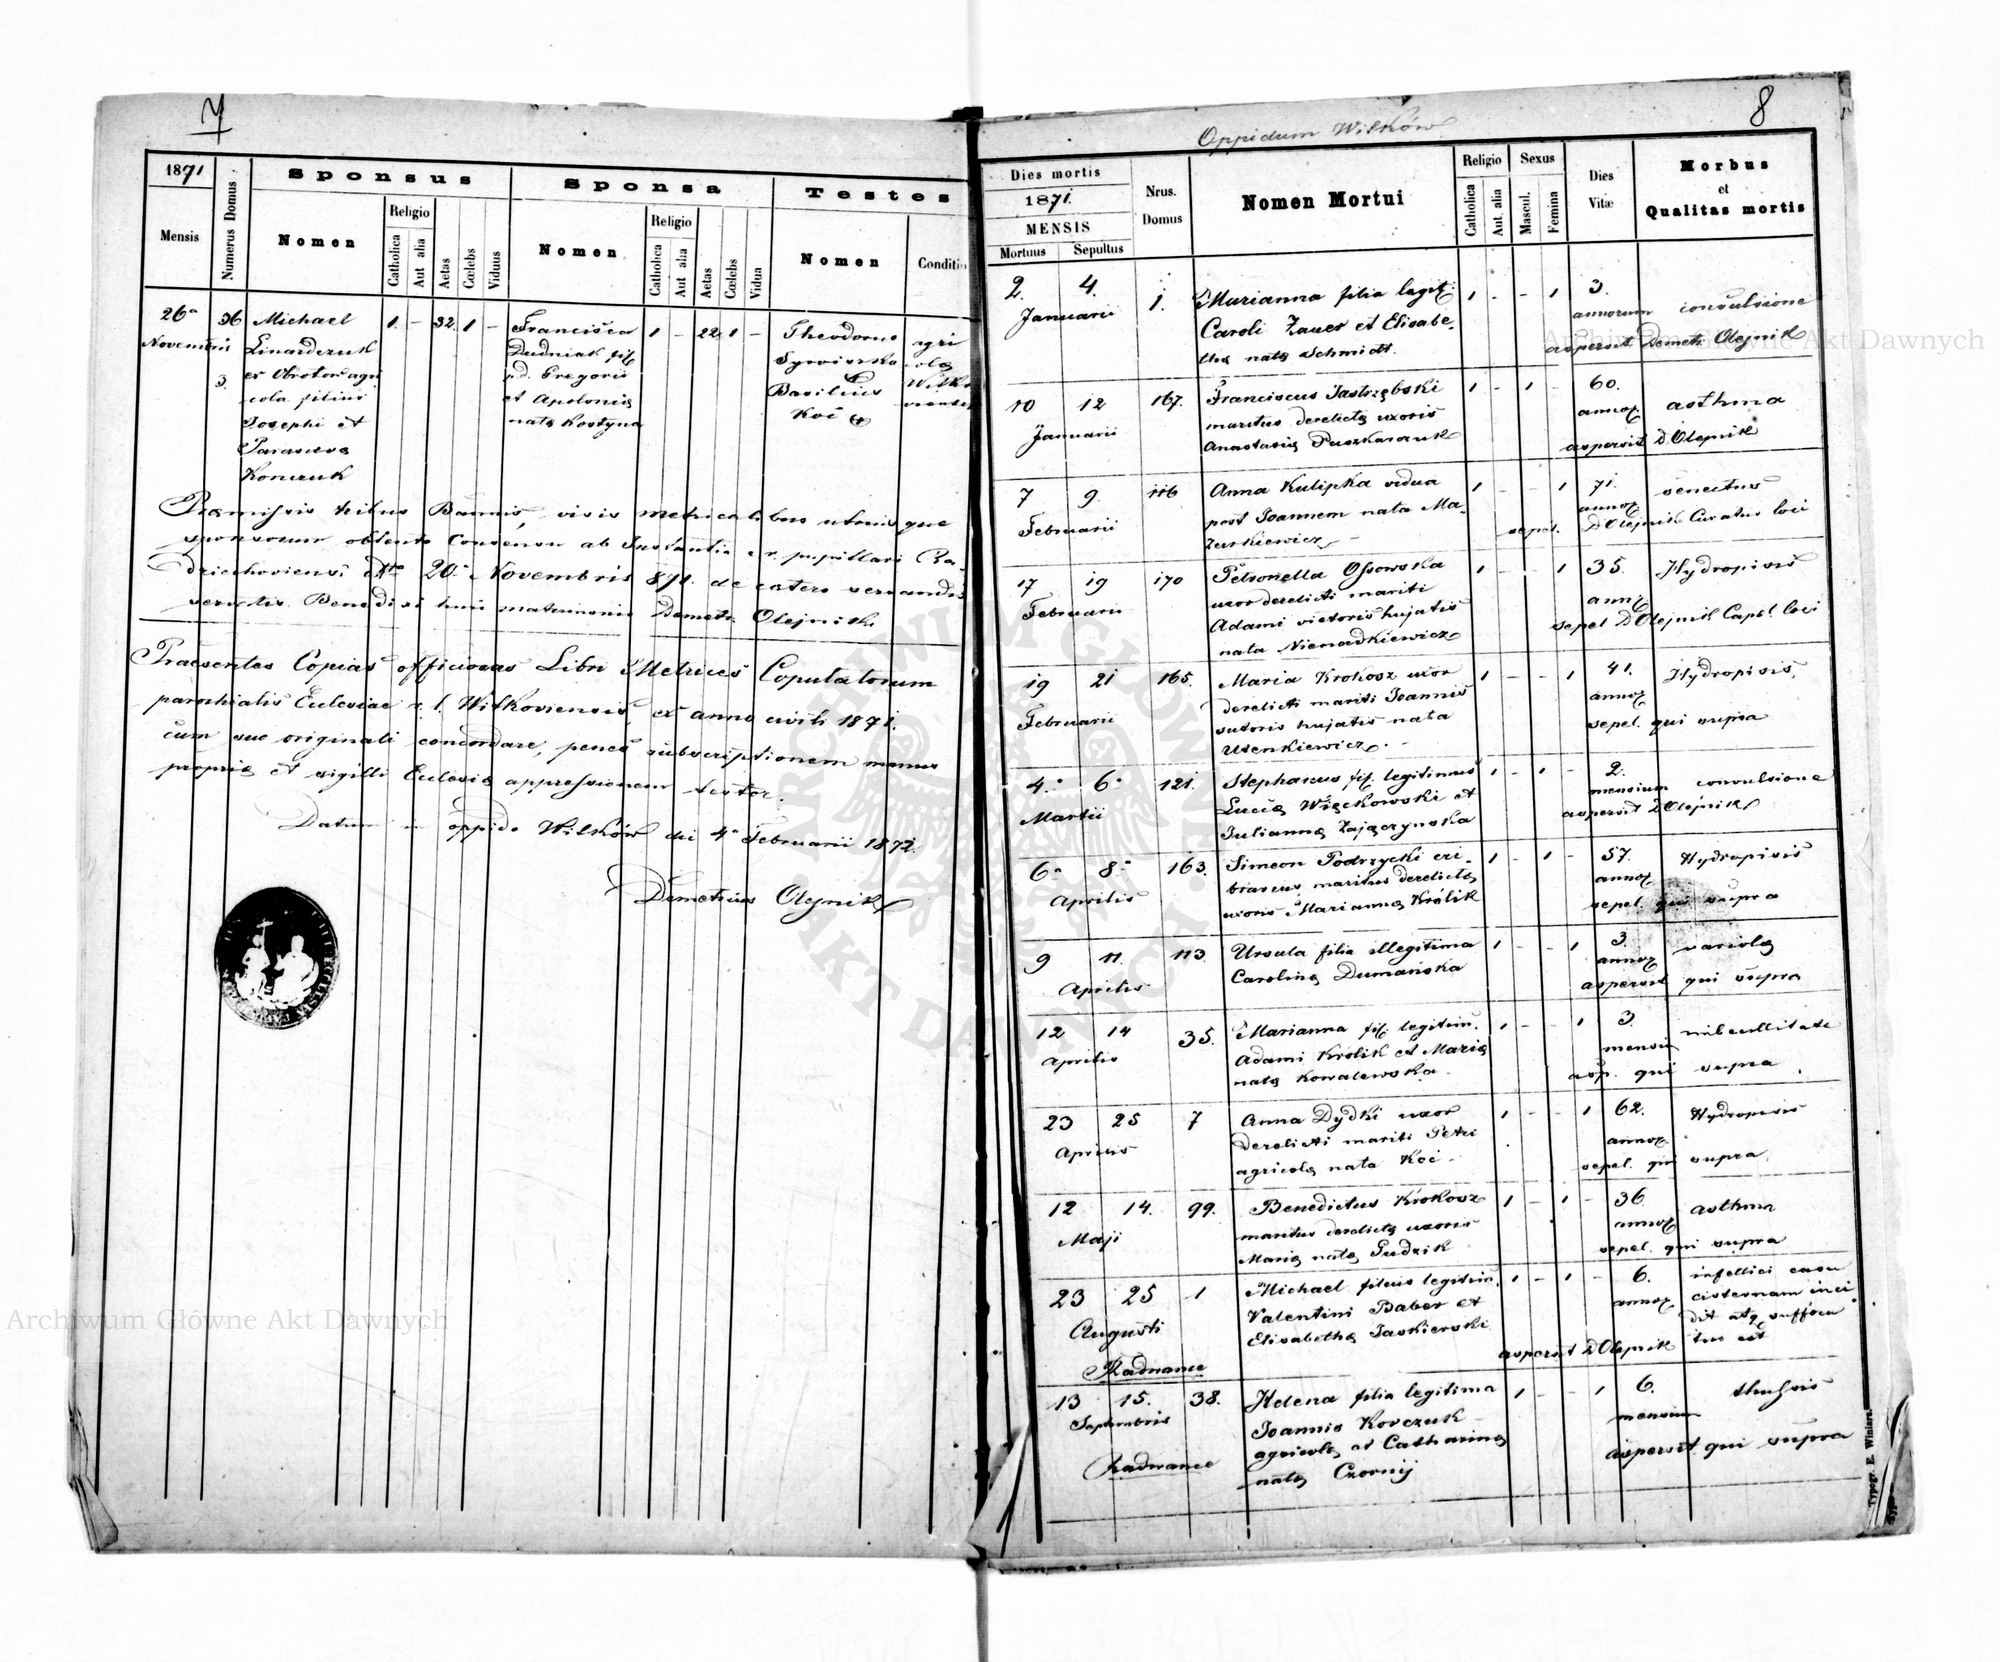 7
1871
Mensis
Numerus Domus
Sponsus
Nomen
Religio
Catholica
Aut alia
Aetas
Cœlebs
Viduus
Sponsa
Nomen
Religio
Catholica
Aut alia
Aetas
Cœlebs
Vidua
Testes
Nomen
Conditio
26a
Novembris
36
3.
Michael
Linardczuk
ex Obrotow agri
cola filius
Josephi et
Parasceva
Konczuk
1. - 32. 1 -
Francisca
Dudniak fil.
Gregorii
et Apolonię
natę Kostyna
1 - 22 1 -
Theodorus
Basilius
Koć
agri
colę
Præmissis tribus Bannis, visis metricalibus utriusque
sponsorum, obtento Consensu ab Instantia pupillari Ra-
dziechoviensi dto 20a Novembris 871. de cætero servandis
servatis. Benedixi huic matrimonio Demetr. Olejnik
Praesentes Copias officiosas Libri Metrices Copulatorum
parochialis Ecclesiae r. l. Wilkoviensis, ex anno civili 1871.
cum suo originali concordare, penes subscriptionem manus
proprię et sigilli Ecclesię appressionem testor.
Datum in oppido Wilków die 4a Februarii 1872.
Demetrius Olejnik
8
Oppidum Wilków
Dies mortis
1871.
MENSIS
Mortuus Sepultus
Nrus.
Domus
Nomen Mortui
Religio
Catholica
Aut. alia
Sexus
Mascul.
Femina
Dies
Vitæ
Morbus
et
Qualitas mortis
2. 4.
Januarii
1.
Marianna filia legit.
Caroli Zauer et Elisabe-
thę natę Schmidt.
1 - - 1
3.
annorum convulsione
aspersit Demetr Olejnik
10 12
Januarii
167.
Franciscus Jastrzębski
maritus derelictę uxoris
Anastasię Puszkarczuk
1 - 1 -
60.
annor. asthma
aspersit D Olejnik
7 9
Februarii
116
Anna Kulipka vidua
post Joannem nata Ma-
zurkiewicz
1 - - 1
71.
annor. senectus
sepel. D Olejnik Curatus loci
17 19
Februarii
170
Petronella Ossowska
uxor derelicti mariti
Adami victoris hujatis
nata Nienadkiewicz
1 - - 1
35. Hydropisis
annor.
sepel D Olejnik Capel. loci
19 21
Februarii
165.
Maria Krokosz uxor
derelicti mariti Joannis
sutoris hujatis nata
Usenkiewicz.
1 - - 1
41. Hydropisis,
annor.
sepel. qui supra
4.a 6.a
Martii
121.
Stephanus fil. legitimus
Lucę Więckowski et
Juliannę Zajączynska
1 - 1 -
2.
mensium convulsione
aspersit D Olejnik
6.a 8.a
Aprilis
163.
Simeon Podrzycki cri-
brarius, maritus derelictę
uxoris Mariannę Królik
1 - 1 -
57. Hydropisis
annor.
sepel. qui supra
9 11.
Aprilis
113
Ursula filia illegitima
Carolinę Dumańska
1 - - 1
3. variolę
annor.
aspersit qui supra
12 14
Aprilis
35.
Marianna fil. legitim.
Adami Królik et Marię
natę Kowalewska.
1 - - 1
3. imbecillitate
mensiu
asp. qui supra
23 25
Aprilis
7
Anna Dydki uxor
derelicti mariti Petri
agricolę nata Koć
1 - - 1
62. Hydropisis
annor.
sepel. qui supra
12 14.
Maji
99.
Benedictus Krokosz
maritus derelictę uxoris
Marię natę Pudzik
1 - 1 -
36. asthma
annor.
sepel. qui supra
23 25
Augusti
1
Radwance
Michael filius legitim.
Valentini Baber et
Elisabethę Jaskierski
1 - 1 -
6. infellici casu
annor. cisternam inci
dit atq suffoca
tus est
aspersit D Olejnik
13 15.
Septembris
38.
Radwance
Helena filia legitima
Joannis Korczuk
agricolę et Catharinę
natę Czornij
1 - - 1
6. thussis
mensium
aspersit qui supra
Typogr. E. Winiarz.
Archiwum Główne Akt Dawnych
Archiwum Główne Akt Dawnych
ARCHIWUM GŁÓWNE AKT DAWNYCH